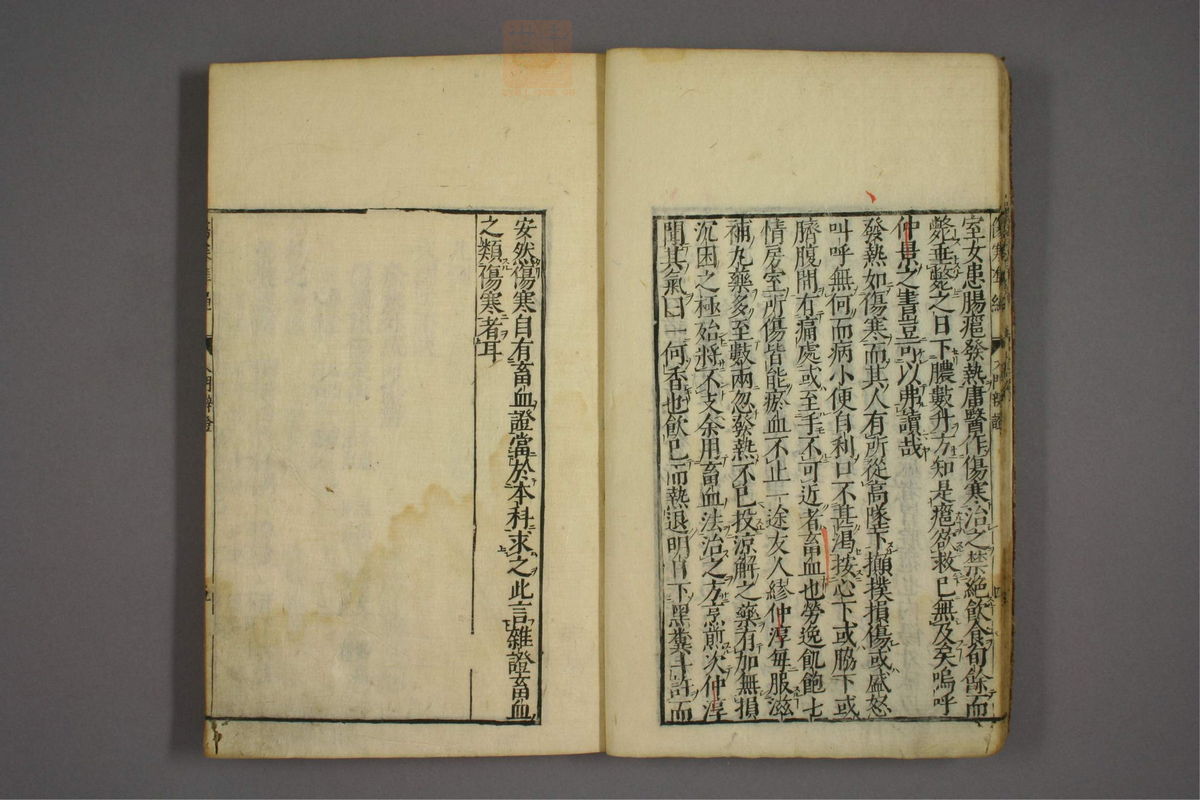 室女患腸癰發熱庸醫作傷寒治之禁絶飲食旬餘而
斃垂斃之日下膿數升方知是癰苐救已無及矣嗚呼
仲景之書豈可以弗讀哉
發熱如傷寒而其人有所從高墜下攧撲損傷或盛怒
叫呼無何而病小便自利口不甚渴按心下或脇下或
臍腹間有痛處或至手不可近者畜血也勞逸飢飽七
情房室所傷皆能瘀血不止一途友人繆仲淳每服滋
補丸藥多至數兩忽發熱不已投涼解之藥有加無損
沉困之極始將不支余用畜血法治之方烹煎次仲淳
聞其氣曰一何香也飲已而熱退明日下黑糞斗許而
安然傷寒自有畜血證當於本科求之此言雜證畜血
之類傷寒者耳